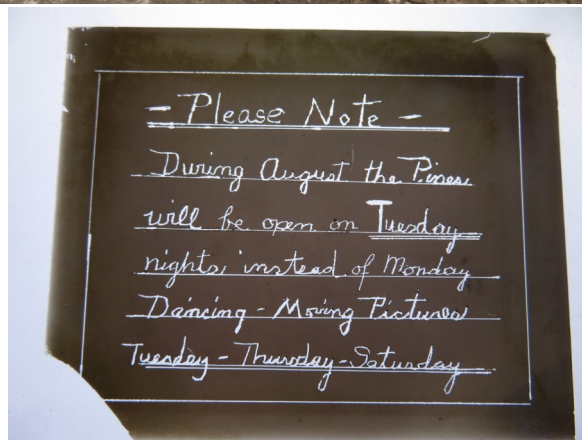 - Please Note -
During August the Pines
will be open on Tuesday
nights, instead of Monday
Dancing - Moving Pictures
Tuesday - Thursday - Saturday